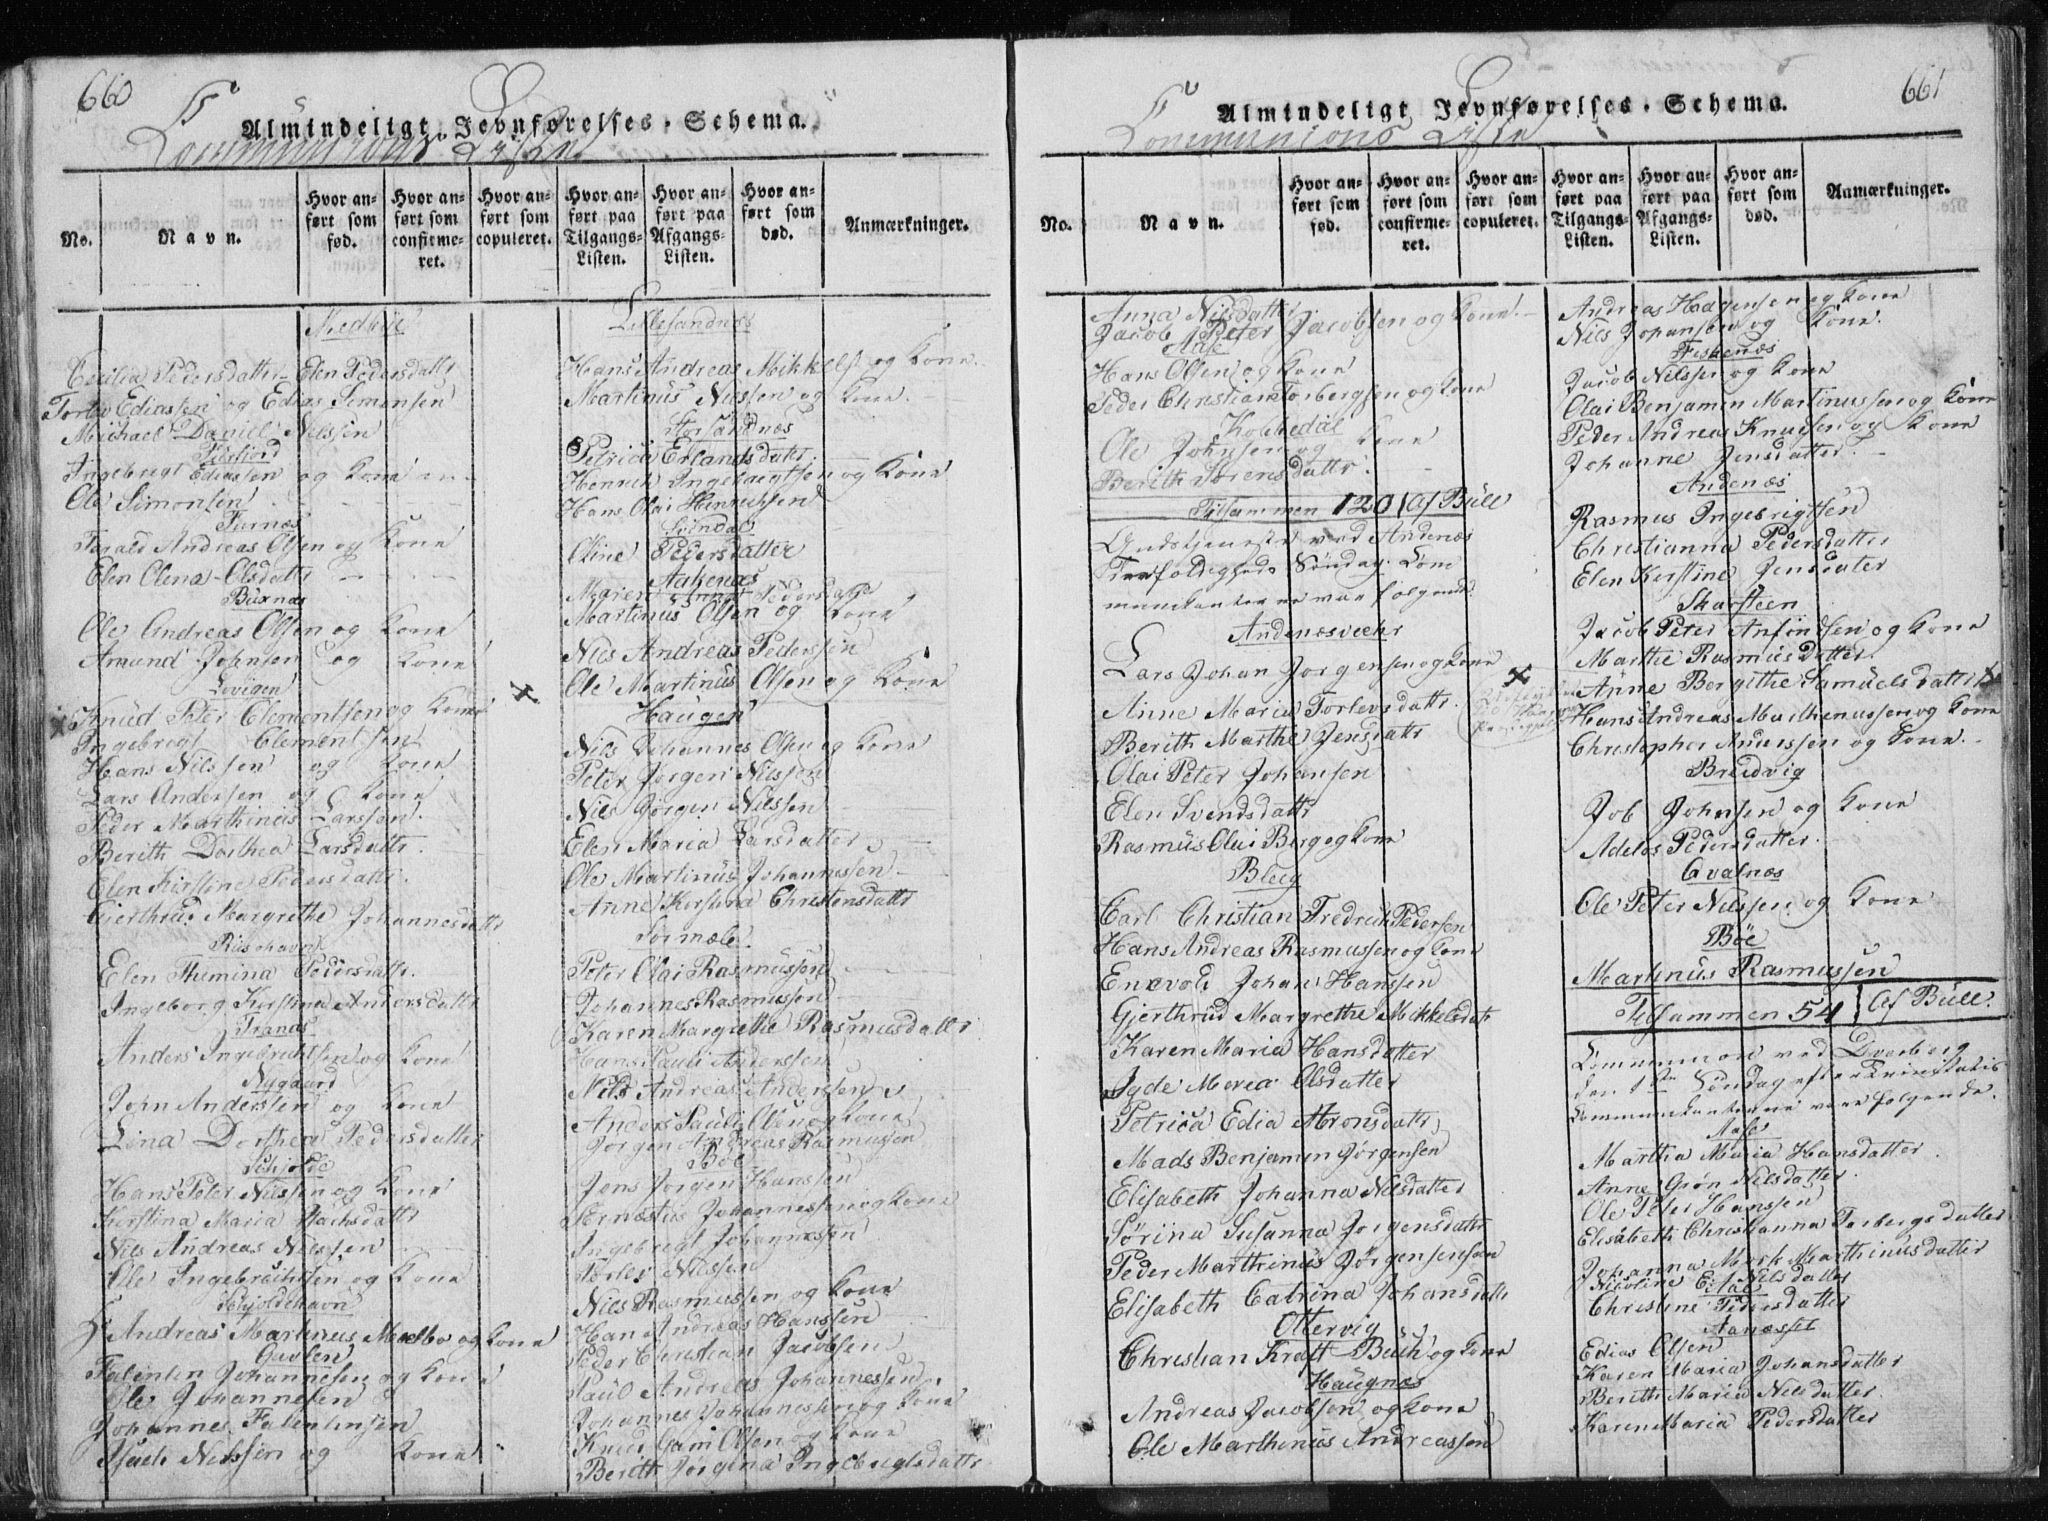 660
Almindeligt Jevnførelses-Schema.
Communions Liste
No.
Navn.
Hvor anført som fød.
Hvor anført som confirmeret.
Hvor anført som copuleret.
Hvor anført paa Tilgangs-Listen.
Hvor anført paa Afgangs-Listen.
Hvor anført som død.
Anmærkninger.
Cecilia Pedersdattr - Elen Pedersdattr
Torlev Ediassen og Edias Simonsen
Michael Daniel Nilssen
Ingebrigt Ediassen og Kone
Ole Simonsen
Turnæs
Farald Andreas Olsen og Kone
Elen Olena Olsdattr
Buxnæs
Ole Andreas Olsen og Kone
Amund Johnsen og Kone
Lovigen
Knud Peter Clementsen og Kone
Ingebrigt Clementsen
Hans Nilssen og Kone
Lars Andersen og Kone
Peder Marthinus Larssen.
Berith Dorthea Larsdattr
Elen Kirstine Pedersdattr.
Gierthrud Margrethe Johannesdattr
Elen Thumina Pedersdattr.
Ingeborg Kirstina Andersdattr
Tranes
Anders Ingebrichtsen og Kone
Nygaard
John Anderssen og Kone
Lina Dorthea Pedersdatter
Schjolde
Hans Peter Nilssen og Kone
Kirstina Maria Isachsdattr
Nils Andreas Nilssen
Ole Ingebrichtsen og Kone
Schjoldehavn
Andreas Martinus Maelbo og Kone
Gavlen
Falentin Johannesen og Kone
Ole Johannesen
Johannes Falentinsen
Isach Nilssen og Kone
Lillesandnæs
Hans Andreas Mikkelsn og Kone
Martinus Nilssen og Kone
Storsandnæs
Petrica Erlandsdatr
Henrich Ingebrigtsen og Kone
Hans Olai Henrichsen
Lyndal
Oline Pedersdatter
Aakenæs
Maren Anna Pedersdattr
Martinus Olsen og Kone
Nils Andreas Pederssen
Ole Martinus Olsen og Kone
Haugen
Nils Johannes Olsen og Kone
Peter Jørgen Nilssen
Nils Jørgen Nilssen
Elen Maria Larsdatter
Ole Martinus Johannessen
Anne Kirstina Christensdattr
Sørmæle
Peter Olai Rasmussen
Johannes Rasmussen
Karen Margrethe Rasmusdattr
Hans Pauli Anderssen
Nils Andreas Anderssen
Anders Pauli Olsen og Kone
Jørgen Andreas Rasmussen
Böe
Jens Jørgen Hanssen
Ernæstus Johannessen og Kone
Ingebrigt Johannessen
Torles Nilssen
Nils Rasmussen og Kone
Hans Andreas Hanssen
Peder Christian Jacobsen
Paul Andreas Johannessen
Johannes Johannessen og Kone
Knud Gam Olsen og Kone
Berith Jørgina Ingebrigtsdattr
661
Almindeligt Jevnførelses-Schema.
Communions Liste
No.
Navn.
Hvor anført som fød.
Hvor anført som confirmeret.
Hvor anført som copuleret.
Hvor anført paa Tilgangs-Listen.
Hvor anført paa Afgangs-Listen.
Hvor anført som død.
Anmærkninger.
Anna Nilsdatter
Jacob Peter Jacobsen og Kone
Aase
Hans Olsen og Kone
Peder Christian Torbergsen og Kone
Kobbedal
Ole Johnsen og Kone
Berith Sørensdattr.
Tilsammen 120 Af Büll
Gudstieneste ved Andenæs
Trefoldigheds Söndag. Com
munikanterne var følgende
Andenæsvechr
Lars Johan Jørgensen og Kone
Anne Maria Torlevsdattr
Berith Marthe Jensdattr
Olai Peter Johansen
Elen Svendsdattr
Rasmus Olai Berg og Kone
Bleeg
Carl Christian Fredrich Pedersen
Hans Andreas Rasmussen og Kone
Enevold Johan Hanssen
Gjerthrud Margrethe Mikkelsdatr
Karen Maria Hansdatter
Sygde Meria Olsdatter
Petrica Edia Aronsdattr
Mads Benjamin Jørgensen
Elisabeth Johanna Nilsdatter
Sørina Susanna Jørgensdattr
Peder Marthinus Jørgensen
Elisabeth Catrina Johansdattr
Ottervig
Christian Kraft Büch og Kone
Haugnæs
Andreas Jacobsen og Kone
Ole Marthinus Andreassen
Andreas Hagensen og Kone
Nils Johansen og Kone.
Fiskenæs
Jacob Nilssen og Kone
Olai Benjamin Martinussen og Kone
Peder Andreas Knudsen og Kone
Johanne Jensdatter
Andenæs
Rasmus Ingebrigtsen
Christianna Pedersdatter
Elen Kirstine Jensdater
Skarsteen
Jacob Peter Anfindsen og Kone
Marthe Rasmusdatter
Anne Bergithe Samuelsdatter
Hans Andreas Marthenussen og Kone
Christopher Anderssen og Kone.
Breidvig
Job Johnsen og Kone
Adelos Pedersdatter.
Qvalnæs
Ole Peter Nilssen og Kone
Böe
Martinus Rasmussen
Tilsammen 54 Af Büll.
Communion ved Dverberg
den 1ste Söndag efter Trinitatis
Communikanterne vare følgende.
Aase
Martha Maria Hansdatter
Anne Grøn Nilsdatter
Ole Peter Hanssen
Elisabeth Christianna Torbergsdatter
Johanna Mark Marthinusdatter
Nicoline Nilsdatter
Christine Pedersdatter
Aanæsset
Edias Olsen
Karen Maria Johansdatter
Berith Maria Nilsdatter
Karen Maria Pedersdatter